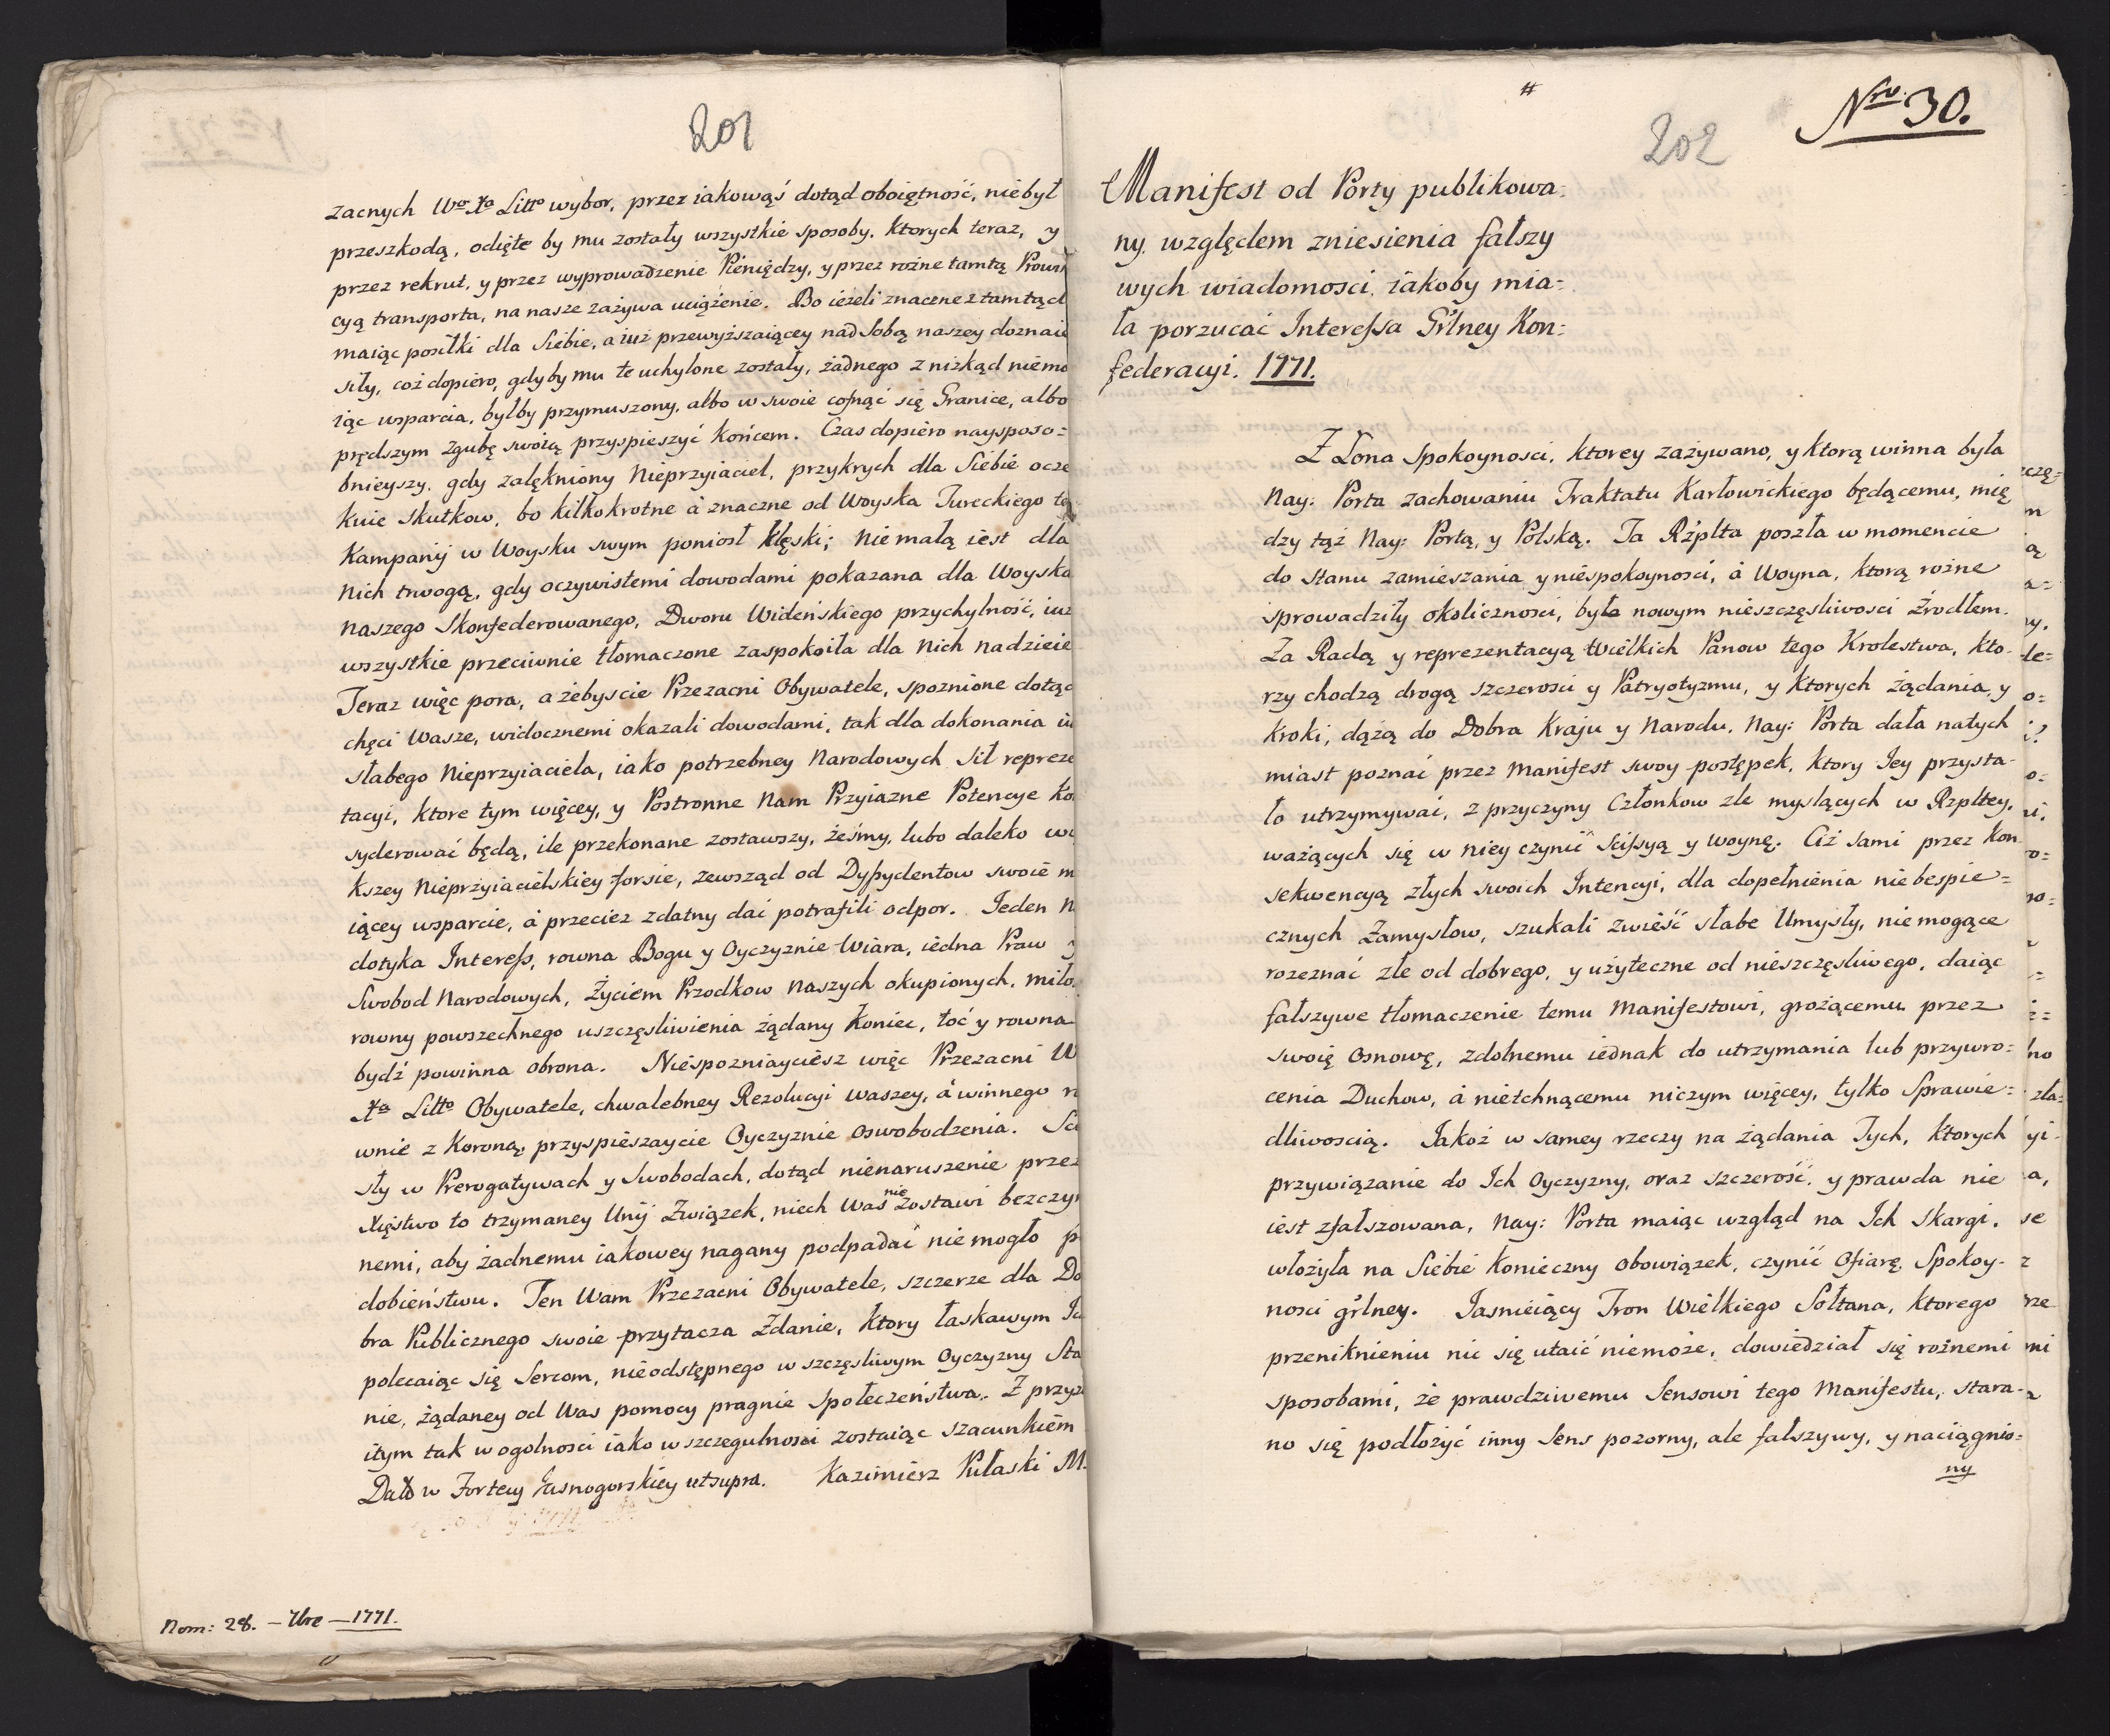 201
zacnych Wo Xa Litto wybor, przez iakowąś dotąd oboiętność, niebył
przeszkodą, odięte by mu zostały wszystkie sposoby, ktorych teraz, y
przez rekrut, y przez wyprowadzenie Pieniędzy, y przez rożne tamtą Prowi
cyą transporta, na nasze zażywa uciążenie. Bo ieżeli znaczne z tamtąd
maiąc posiłki dla Siebie, a iuż przewyższaiącey nad Sobą naszey doznaie
siły, coż dopiero, gdyby mu te uchylone zostały, żadnego z nizkąd niema
iąc wsparcia, byłby przymuszony, albo w swoie cofnąć się Granice, albo
prędszym zgubę swoią przyspieszyć Końcem. Czas dopiero naysposo=
bnieyszy, gdy zalękniony Nieprzyiaciel, przykrych dla Siebie ocze
kuie Skutkow, bo kilkokrotne à znaczne od Woyska Tureckiego tey
Kampanij w Woysku swym poniosł klęski; Nie małą iest dla
Nich trwogą, gdy oczywistemi dowodami pokazana dla Woyska
naszego Skonfederowanego, Dworu Wideńskiego przychylność, iuż
wszystkie przeciwnie tłomaczone zaspokoiła dla Nich nadzieie
Teraz więc pora, ażebyscie Przezacni Obywatele, spoznione dotąd
chęci Wasze, widocznemi okazali dowodami, tak dla dokonania iu
słabego Nieprzyiaciela, iako potrzebney Narodowych Sił repreze
tacyi, ktore tym więcey, y Postronne Nam Przyiazne Potencye Ko
syderować będą, ile przekonane zostawszy, żeśmy, lubo daleko wi
kszey Nieprzyiacielskiey forsie, zewsząd od Dyssydentow swoie m
iącey wsparcie, à przeciez zdatny dać potrafili odpor. Jeden N
dotyka Interess, rowna Bogu y Oyczyznie Wiara, iedna Praw y
Swobod Narodowych, Życiem Przodkow Naszych okupionych, miło
rowny powszechnego uszczęsliwienia żądany Koniec, toć y rowna
bydź powinna obrona. Niespozniayciesz więc Przezacni W
Xa Litto Obywatele, chwalebney Rezolucyi waszey, à winnego
wnie z Koroną, przyspieszaycie Oyczyznie oswobodzenia. Sci
sły w Prerogatywach y Swobodach, dotąd nienaruszenie przez
Xięstwo to trzymaney Unij Związek, niech Was nie zostawi bezczyn
nemi, aby żadnemu iakowey nagany podpadać nie mogło p
dobieństwu. Ten Wam Przezacni Obywatele, szczerze dla Do
bra Publicznego swoie przytacza Zdanie, ktory łaskawym
polecaiąc się Sercom, nieodstępnego w szczęsliwym Oyczyzny Sta
nie, żądaney od Was pomocy pragnie Społeczeństwa. Z przyz
itym tak w ogolnosci iako w szczegulnosci zostaiąc szacunkiem
Datt w Fortecy Jasnogorskiey utsupra. Kazimierz Pułaski M.
Nom: 28. – 7bre – 1771.
#
Nro 30.
202
Manifest od Porty publikowa=
ny, względem zniesienia fałszy
wych wiadomosci, iakoby mia=
ła porzucać Interessa Grlney Kon=
federacyi. 1771.
Z Łona Spokoynosci, ktorey zażywano, y ktorą winna była
Nay: Porta zachowaniu Traktatu Karłowickiego będącemu, mię
dzy tąż Nay: Portą, y Polską. Ta Rzplta poszła w momencie
do Stanu zamieszania y niespokoynosci, à Woyna, ktorą rożne
sprowadziły okolicznosci, była nowym nieszczęsliwosci Źrodłem.
Za Radą y reprezentacyą Wielkich Panow tego Krolestwa, kto-
rzy chodzą drogą szczerosci y Patryotyzmu, y ktorych żądania, y
kroki, dążą do Dobra Kraju y Narodu, Nay: Porta dała natych
miast poznać przez Manifest swoy postępek, ktory Jey przysta-
ło utrzymywać, z przyczyny Członkow zle myslących w Rzpltey,
ważących się w niey czynić Scissyą y woynę. Ciż sami przez Kon
sekwencyą złych swoich Intencyi, dla dopełnienia niebespie=
cznych Zamysłow, szukali zwieść słabe Umysły, niemogące
rozeznać złe od dobrego, y użyteczne od nieszczęsliwego, daiąc
fałszywe tłomaczenie temu Manifestowi, grożącemu przez
swoię Osnowę, zdolnemu iednak do utrzymania lub przywro=
cenia Duchow, à nietchnącemu niczym więcey, tylko Sprawie=
dliwoscią. Jakoż w samey rzeczy na żądania Tych, ktorych
przywiązanie do Ich Oyczyzny, oraz szczerość, y prawda nie
iest zfałszowana, Nay: Porta maiąc wzgląd na Ich Skargi,
włożyła na Siebie Konieczny obowiązek, czynić Ofiarę Spokoy-
nosci grlney. Jasnieiący Tron Wielkiego Sołtana, ktorego
przeniknieniu nic się utaić niemoże, dowiedział się rożnemi
sposobami, że prawdziwemu Sensowi tego Manifestu, stara-
no się podłożyć inny Sens pozorny, ale fałszywy, y naciągnio=
ny